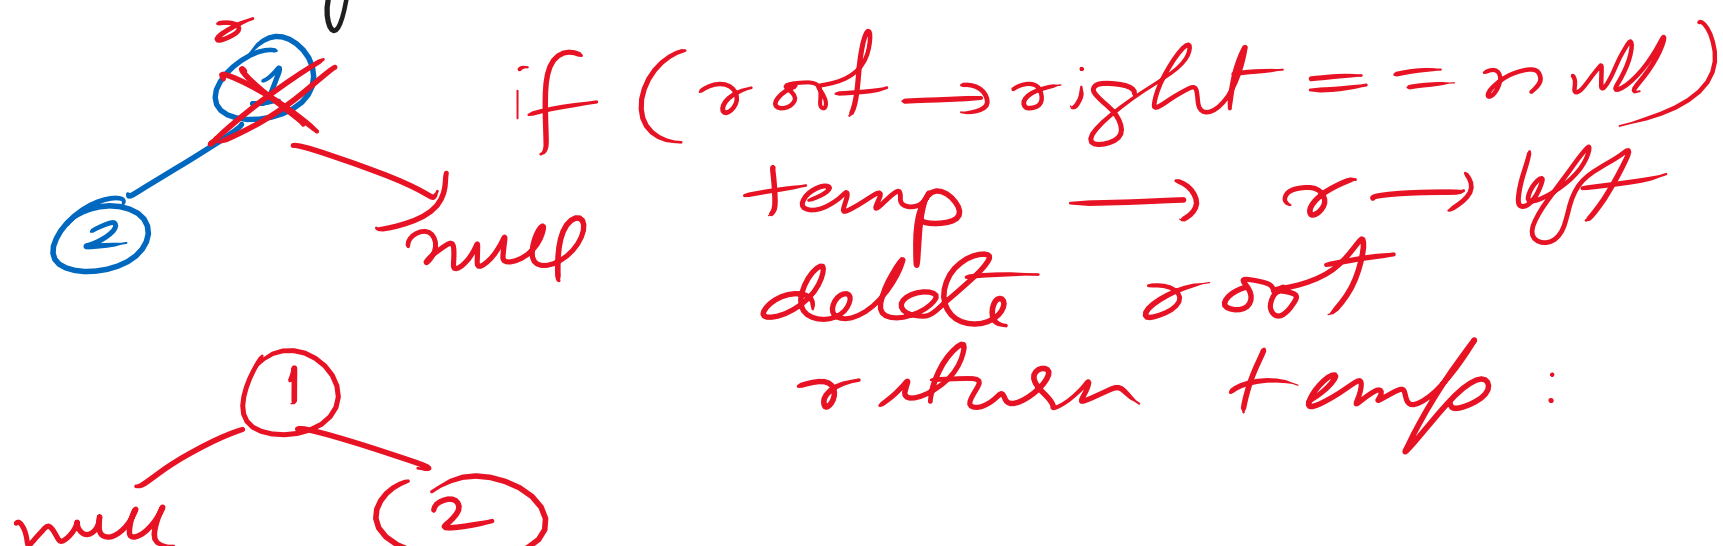 r
1
if (root → right == null)
2
null
temp → r → left
delete root
return temp :
1
null
2